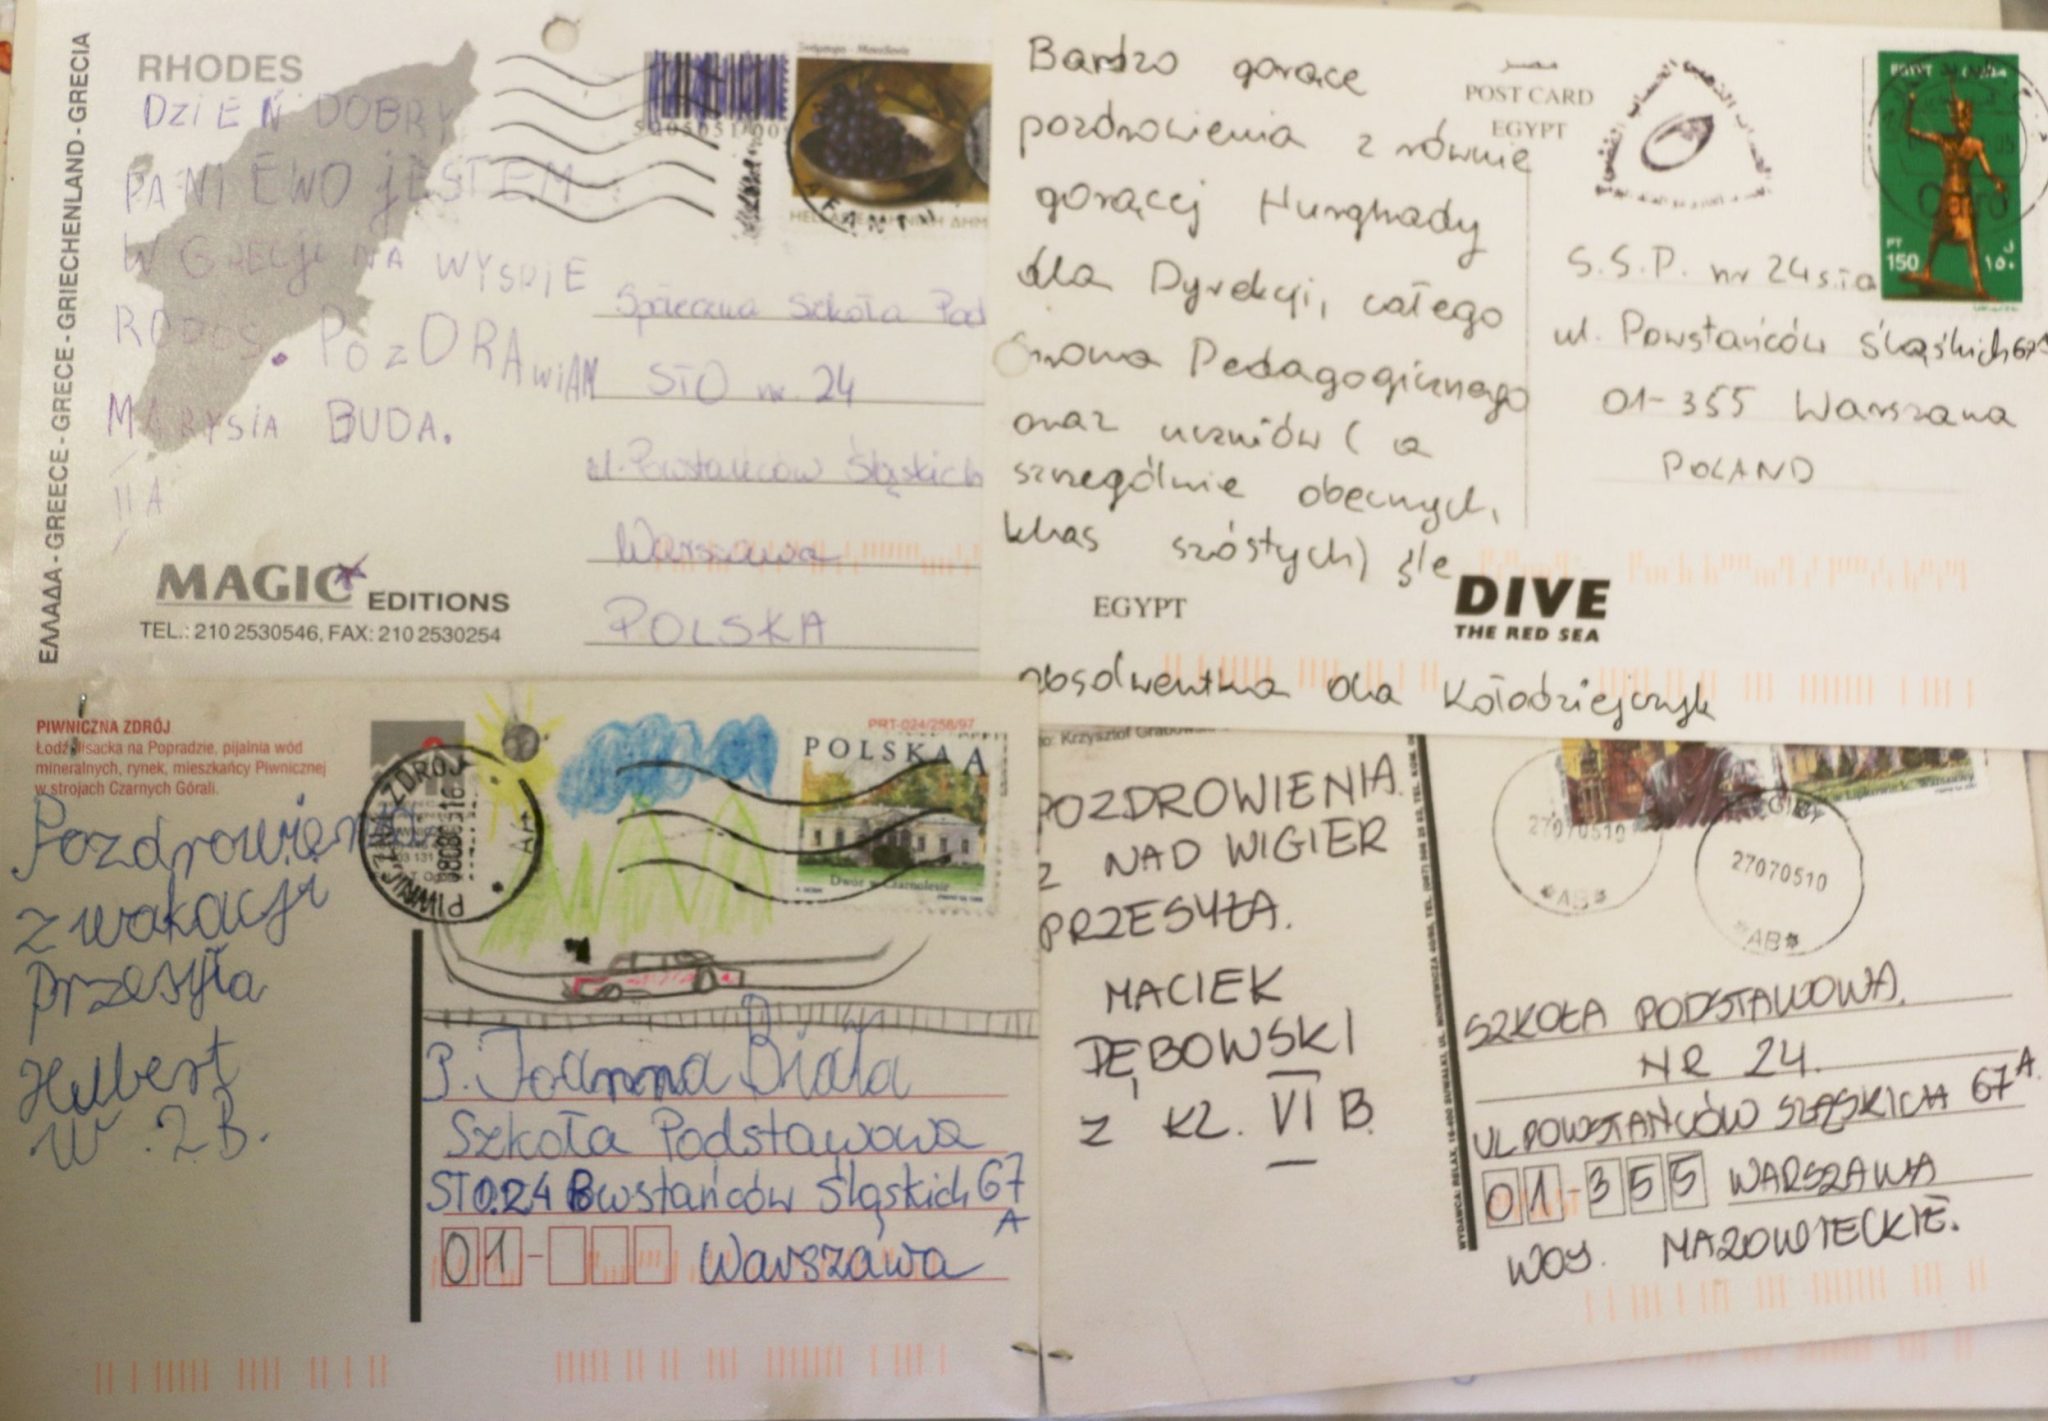 ΕΛΛΑΔΑ - GREECE - GRECE - GRIECHENLAND - GRECIA
RHODES
DZIEŃ DOBRY
PANI EWO JESTEM
W GRECJI NA WYSPIE
RODOS. POZDRAWIAM
MARYSIA BUDA.
II A
MAGIC EDITIONS
TEL.: 210 2530546, FAX: 210 2530254
Społeczna Szkoła Pod
STO nr. 24
ul. Powstańców Śląskich
Warszawa
POLSKA
Bardzo gorące
pozdrowienia z równie
gorącej Hurghady
dla Dyrekcji, całego
Grona Pedagogicznego
oraz uczniów ( a
szczególnie obecnych,
klas szóstych) śle
absolwentka Ola Kołodziejczyk
مصر
POST CARD
EGYPT
EGYPT
PT 150 ١٥٠
S.S.P. nr 24
ul. Powstańców Śląskich 67A
01-355 Warszawa
POLAND
EGYPT
DIVE
THE RED SEA
PIWNICZNA ZDRÓJ
Łódź flisacka na Popradzie, pijalnia wód
mineralnych, rynek, mieszkańcy Piwnicznej
w strojach Czarnych Górali.
Pozdrowienia
z wakacji
przesyła
Hubert
W. 2B.
PIWNICZNA ZDRÓJ
PRT-024/258/97
POLSKA A
Dwór w Czarnolesie
P. Joanna Biała
Szkoła Podstawowa
STO.24 Powstańców Śląskich 67
A
01- Warszawa
POZDROWIENIA
Z NAD WIGIER
PRZESYŁA.
MACIEK
DĘBOWSKI
Z KL. VI B.
27070510
AB
27070510
AB
SZKOŁA PODSTAWOWA.
NR 24.
UL POWSTAŃCÓW SLĄSKICH 67A.
01-355 WARSZAWA
WOJ. MAZOWIECKIE.